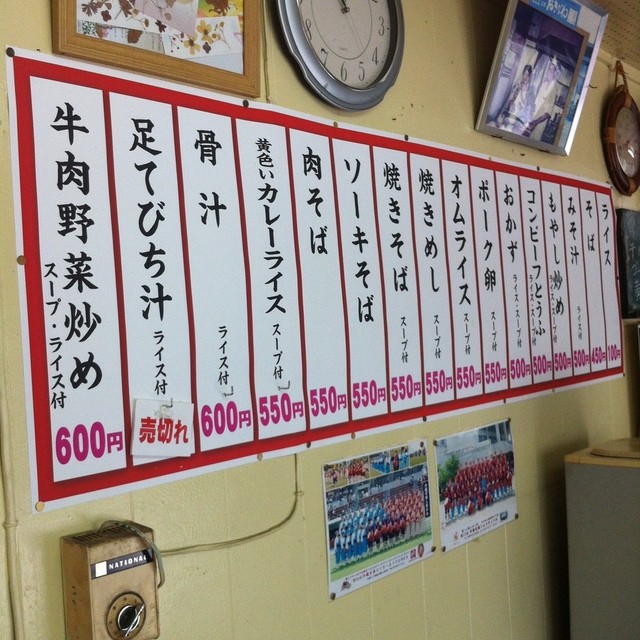 牛肉野菜炒め
スープ・ライス付
600円
足てびち汁
ライス付
売切れ
骨汁
ライス付
600円
黄色いカレーライス
スープ付
550円
肉そば
550円
ソーキそば
550円
焼きそば
スープ付
550円
焼きめし
スープ付
550円
オムライス
スープ付
550円
ポーク卵
スープ付
550円
おかず
ライス・スープ付
500円
コンビーフとうふ
500円
もやし炒め
500円
みそ汁
ライス付
500円
そば
450円
ライス
100円
NATIONAL